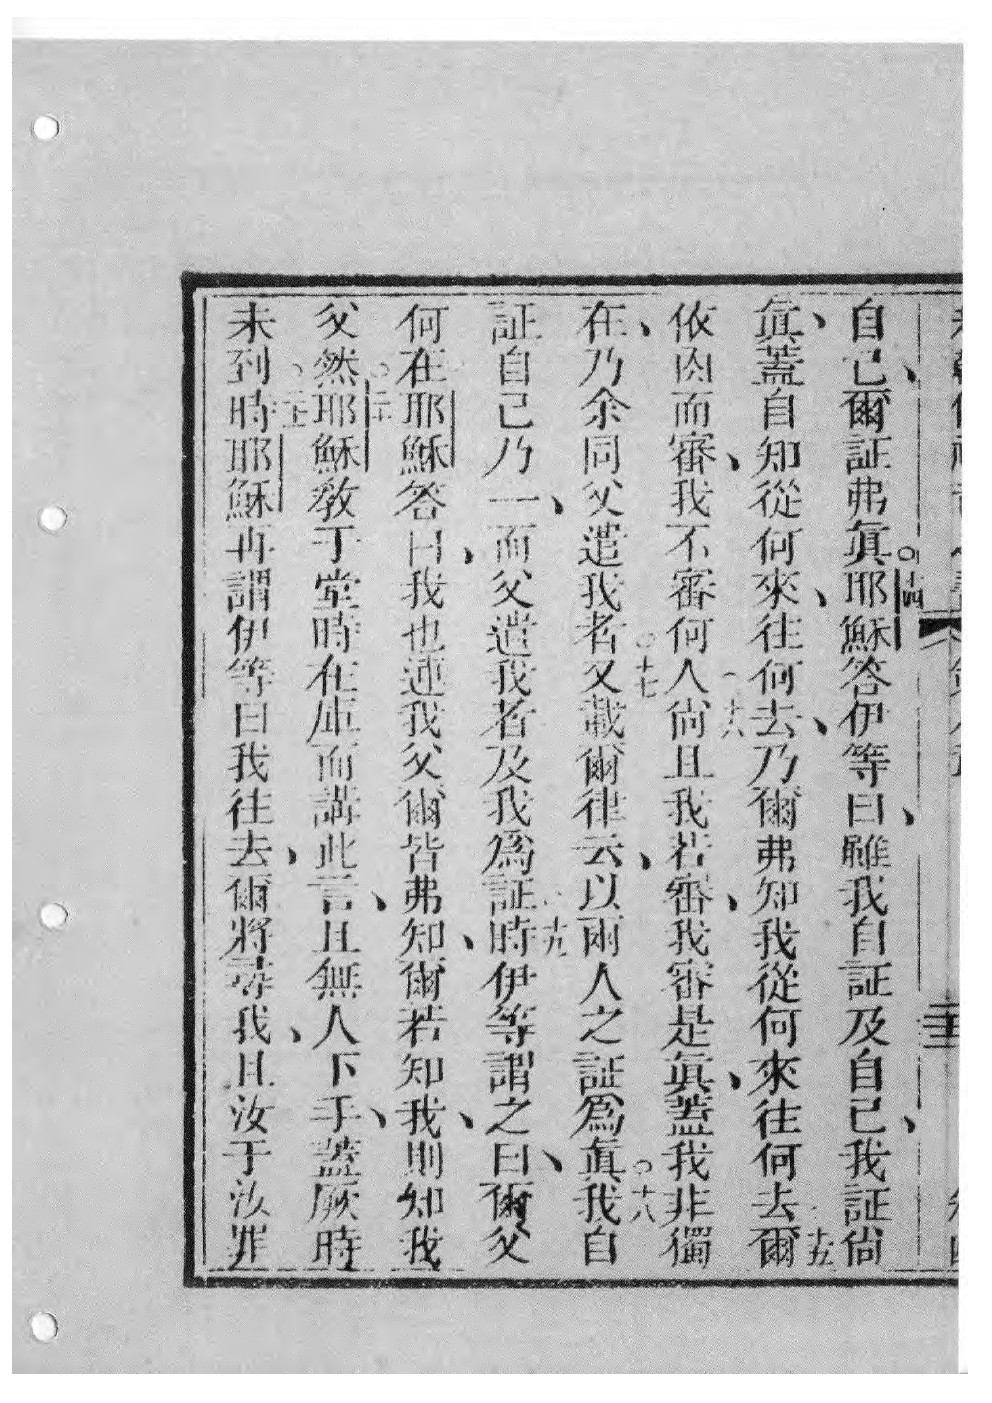 自己、爾証弗眞○十四耶穌答伊等曰、雖我自証及自己、我証尙
眞、蓋自知從何來、往何去、乃爾弗知我從何來往何去○十五爾
依肉而審、我不審何人○十六尙且我若審、我審是眞、蓋我非獨
在、乃余同父遣我者○十七又載爾律云、以兩人之証爲眞○十八我自
証自己乃一、而父遣我者及我爲証○十九時伊等謂之曰、爾父
何在○耶穌答曰、我也連我父爾皆弗知、爾若知我、則知我
父然○二十耶穌敎于堂時在庫而講此言、且無人下手、蓋厥時
未到○二十一時耶穌再謂伊等曰我往去、爾將尋我、且汝于汝罪